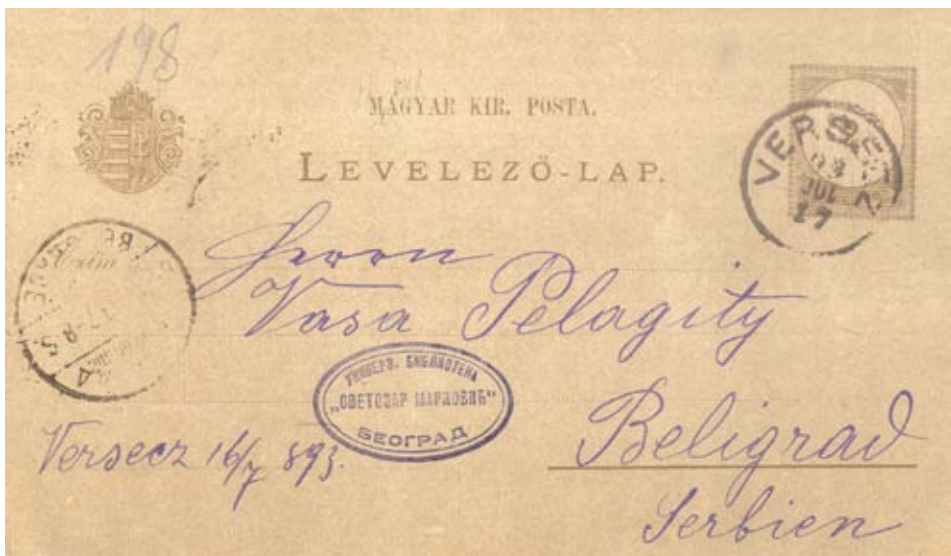 198
MAGYAR KIR. POSTA.
LEVELEZŐ-LAP.
VERSECZ
93
JUL
17
Herrn
Vasa Pelagity
УНИВЕРЗ. БИБЛИОТЕКА
„СВЕТОЗАР МАРКОВИЋ“
БЕОГРАД
Beligrad
Versecz 16/7 893.
Serbien